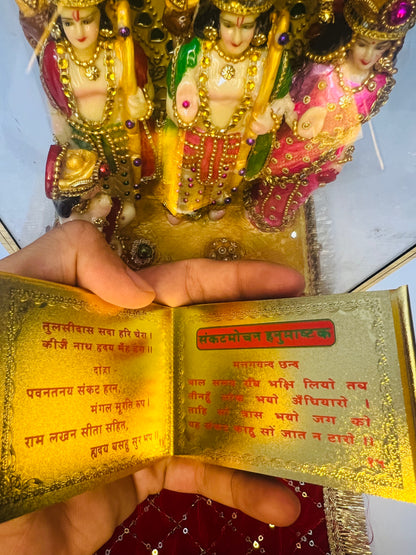 तुलसीदास सदा हरि चेरा।
कीजै नाथ हृदय मँह डेरा।।
दोहा
पवनतनय संकट हरन,
मंगल मूरति रूप।
राम लखन सीता सहित,
हृदय बसहु सुर भूप॥
संकटमोचन हनुमाष्टक
मत्तगयन्द छन्द
बाल समय रवि भक्षि लियो तब
तीनहुँ लोक भयो अँधियारो ।
ताहि सों त्रास भयो जग को
यह संकट काहु सों जात न टारो ।।